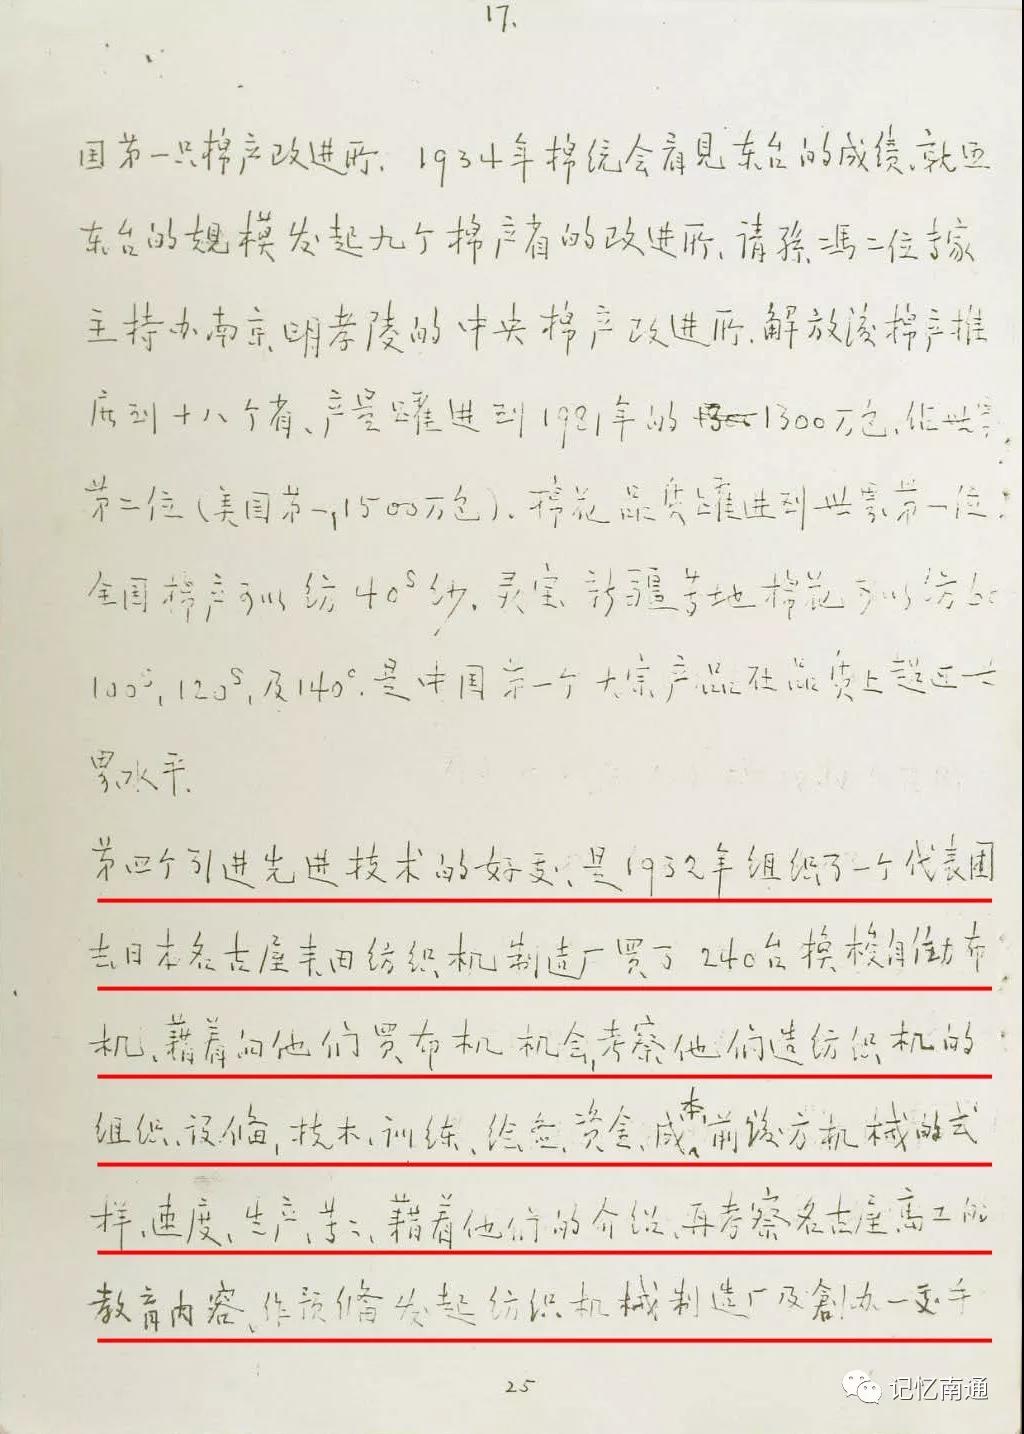 17.
国第一只棉产改进所. 1934年棉统会看见东台的成绩、就照
东台的规模发起九个棉产省的改进所、请孫、馮二位专家
主持办南京、明孝陵的中央棉产改进所. 解放後棉产推
广到十八个省、产量躍进到1981年的1300万包、佔世界
第二位(美国第一,1500万包)、棉花品质躍进到世界第一位:
全国棉产可以纺40S纱、灵宝、新疆等地棉花可以纺60
100S, 120S, 及140S. 是中国第一个大宗产品在品质上超过
界水平.
第四个引进先进技术的好、是1932年组织了一个代表团
去日本名古屋丰田纺织机制造厂買了240台换梭自動布
机、藉着向他们買布机机会,考察他们造纺织机的
组织、设備, 技术、训练、绘图、资金、成本、前後方机械的式
样、速度、生产、等二、藉着他们的介绍、再考察名古屋高工的
教育内容、作预備发起纺织机械制造厂及創办一手
25
记忆南通